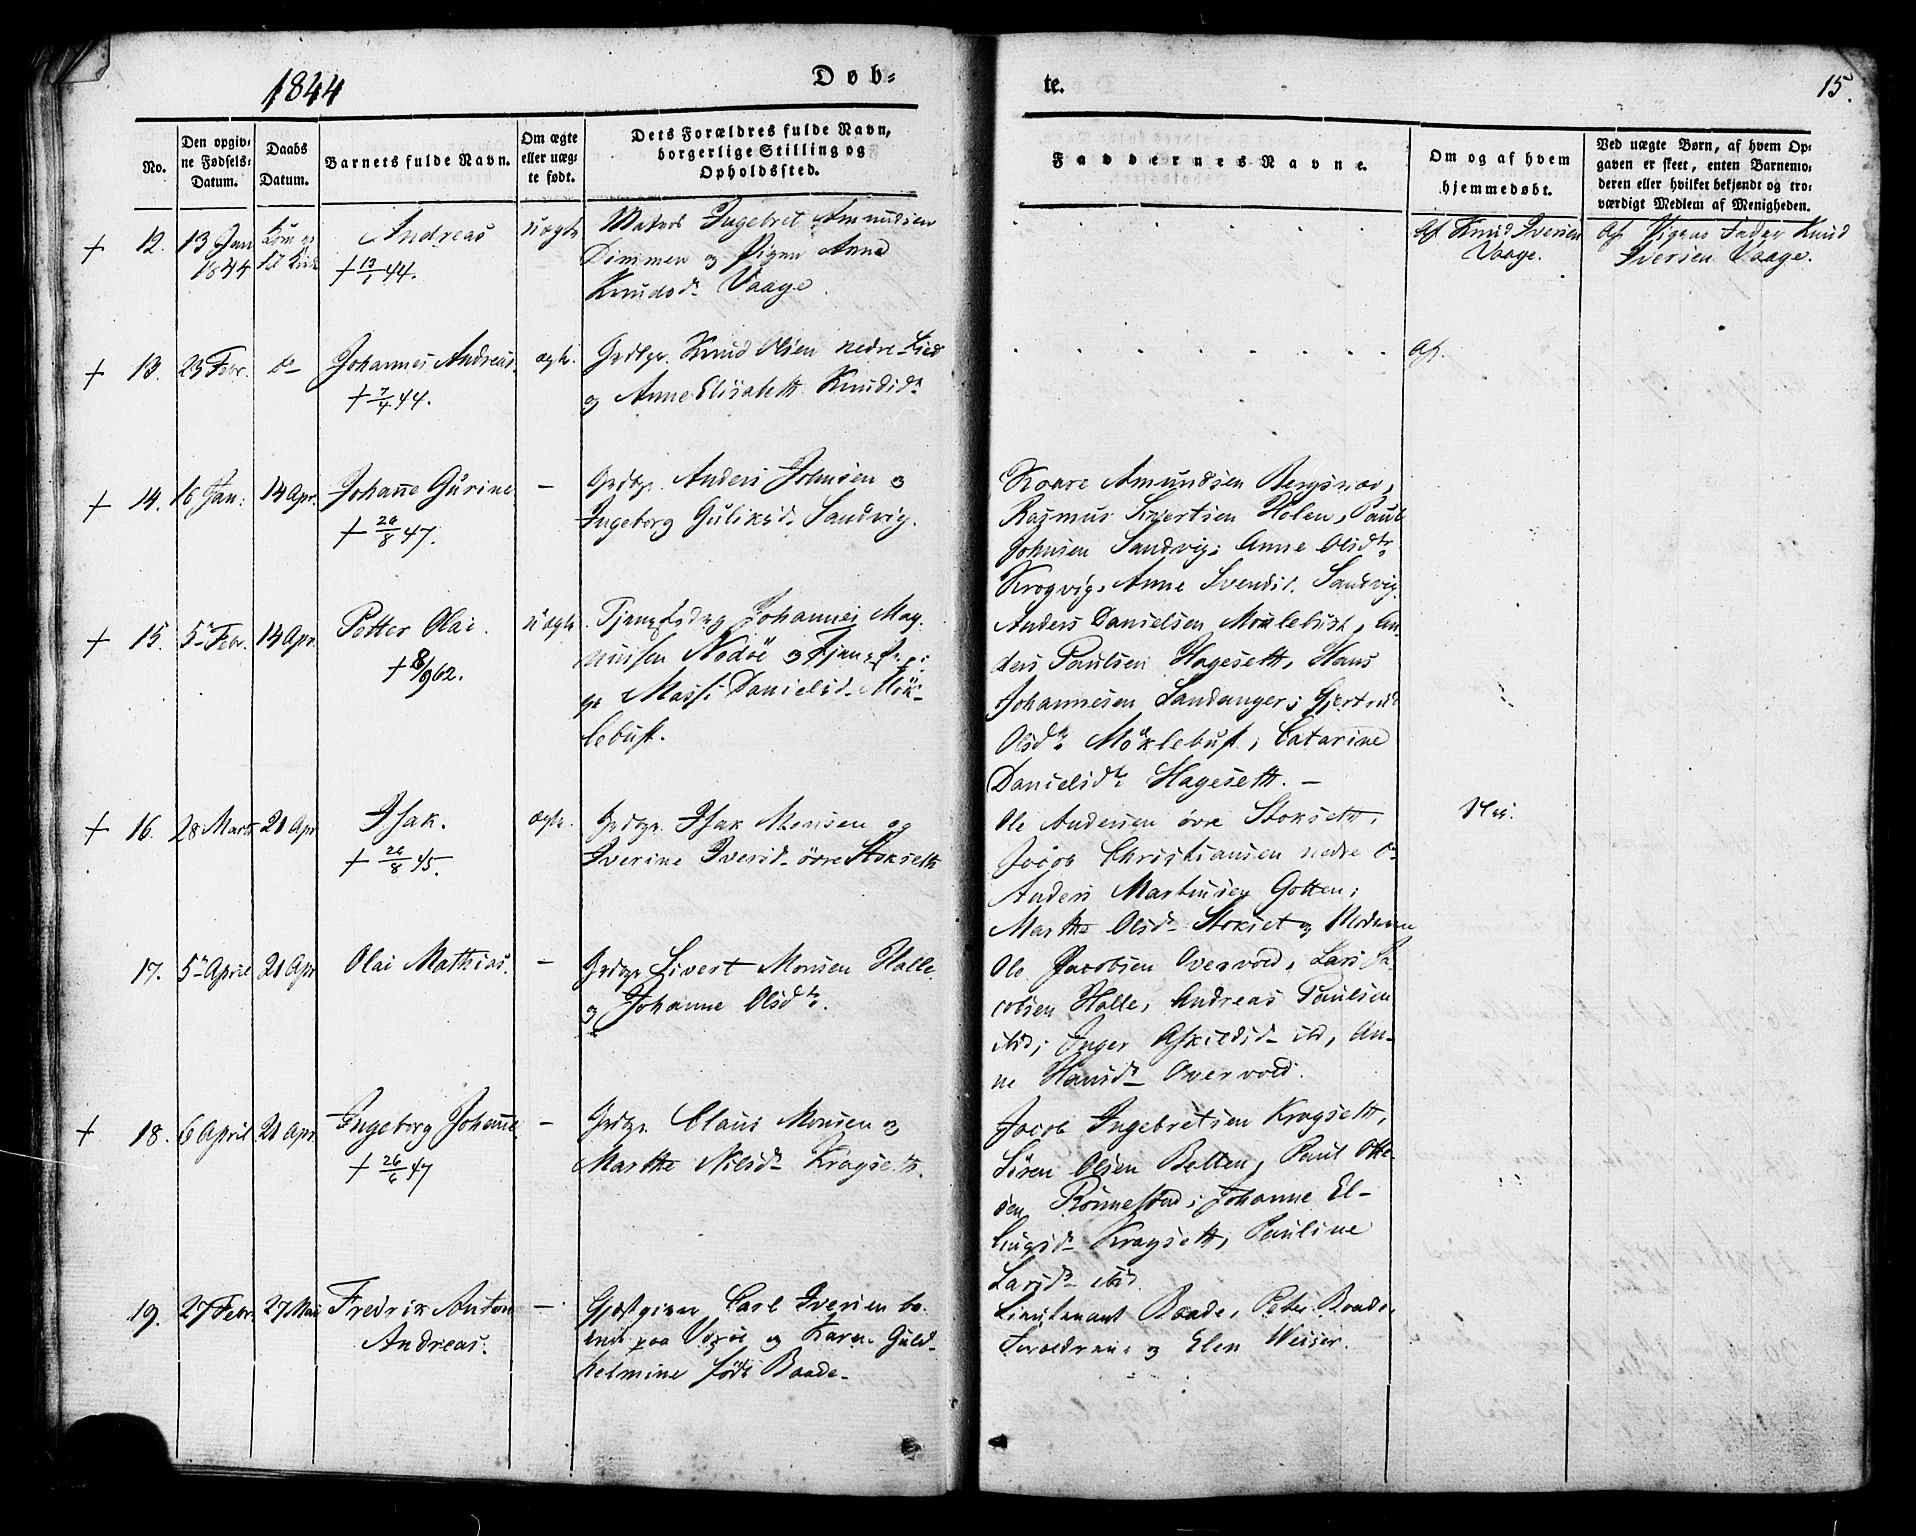 1844
Døb-
te.
15.
No.
Den opgiv-
ne Fødsels-
Datum.
Daabs
Datum.
Barnets fulde Navn.
Om ægte
eller uæg-
te født.
Dets Forældres fulde Navn,
borgerlige Stilling og
Opholdssted.
Faddernes Navne.
Om og af hvem
hjemmedøbt.
Ved uægte Børn, af hvem Op-
gaven er skeet, enten Barnemo-
deren eller hvilket bekjendt og tro-
værdigt Medlem af Menigheden.
+ 12. 13 Jan
1844
Andreas
+ 13/1 44.
Uægte
Ingebret Amundsen
Dimmen og Pigen Anne
Knudsdr Vaage.
Af Knud Iversen
Vaage.
Af Pigens Fader Knud
Iversen Vaage.
+ 13. 23 Febr. do
Johannes Andreas.
+ 7/4 44.
ægte.
Grdbr. Knud Olsen nedre Lied
og Anne Elisabeth Knudsdr
Af.
+ 14. 16 Jan: 14 Apr.
Johanne Gurine
+ 26/8 47.
-
Grdbr. Anders Johnsen og
Ingeborg Guliksdr Sandvig.
Koare Amundsen Bergsnæv,
Rasmus Sivertsen Holen, Paul
Johnsen Sandvig; Anne Olsdtr
Krogvig, Anne Svendsd. Sandvig.
+ 15. 5 Febr. 14 Apr.
Petter Olai.
+ 8/9 62.
Uægte
Tjenestedrg Johannes Mag-
nussen Nodøe og Tjenestepi-
ge Massi Danielsd. Mök-
lebust.
Anders Danielsen Möklebust, An-
ders Paulsen Hagesett, Hans
Johannesen Sandanger; Gjertrud
Olsdtr Möklebust, Catarine
Danielsdtr Hagesett. -
+ 16. 28 Marts 21 Apr
Isak.
+ 26/8 45.
ægte.
Grdbr. Isak Monsen og
Iverine Iversd. övre Stoksett
Ole Andersen övre Stoksett,
Jacob Christiansen nedre do
Anders Martinsen Gotten;
Marthe Olsdr Stokset og Moderen
17. 5 April 21 Apr
Olai Mathias.
-
Grdbr Sivert Monsen Halle
og Johanne Olsdtr.
Ole Jacobsen Overvold, Lars Ja-
cobsen Halle, Andreas Paulsen
ibid; Inger Askildsd. ibd, An-
ne Hansdr Overvold.
+ 18. 6 April 21 Apr
Ingeborg Johanne
+ 26/6 47
-
Grdbr. Claus Monsen og
Marthe Nilsdr Kragsett.
Jacob Ingebretsen Kragsett,
Sören Olsen Belten, Paul Otte-
sen Rönnestad; Johanne El-
lingsdr Kragsett, Pauline
Larsdr ibid
19. 27 Febr. 27 Mai
Fredrik Anton
Andreas.
-
Gjæstgiver Carl Iversen bo-
ende paa Voxöe og Karen Guld-
helmine född Baade.
Lieutenant Baade, Peter Baade,
Forældrene og Elen Weiser.